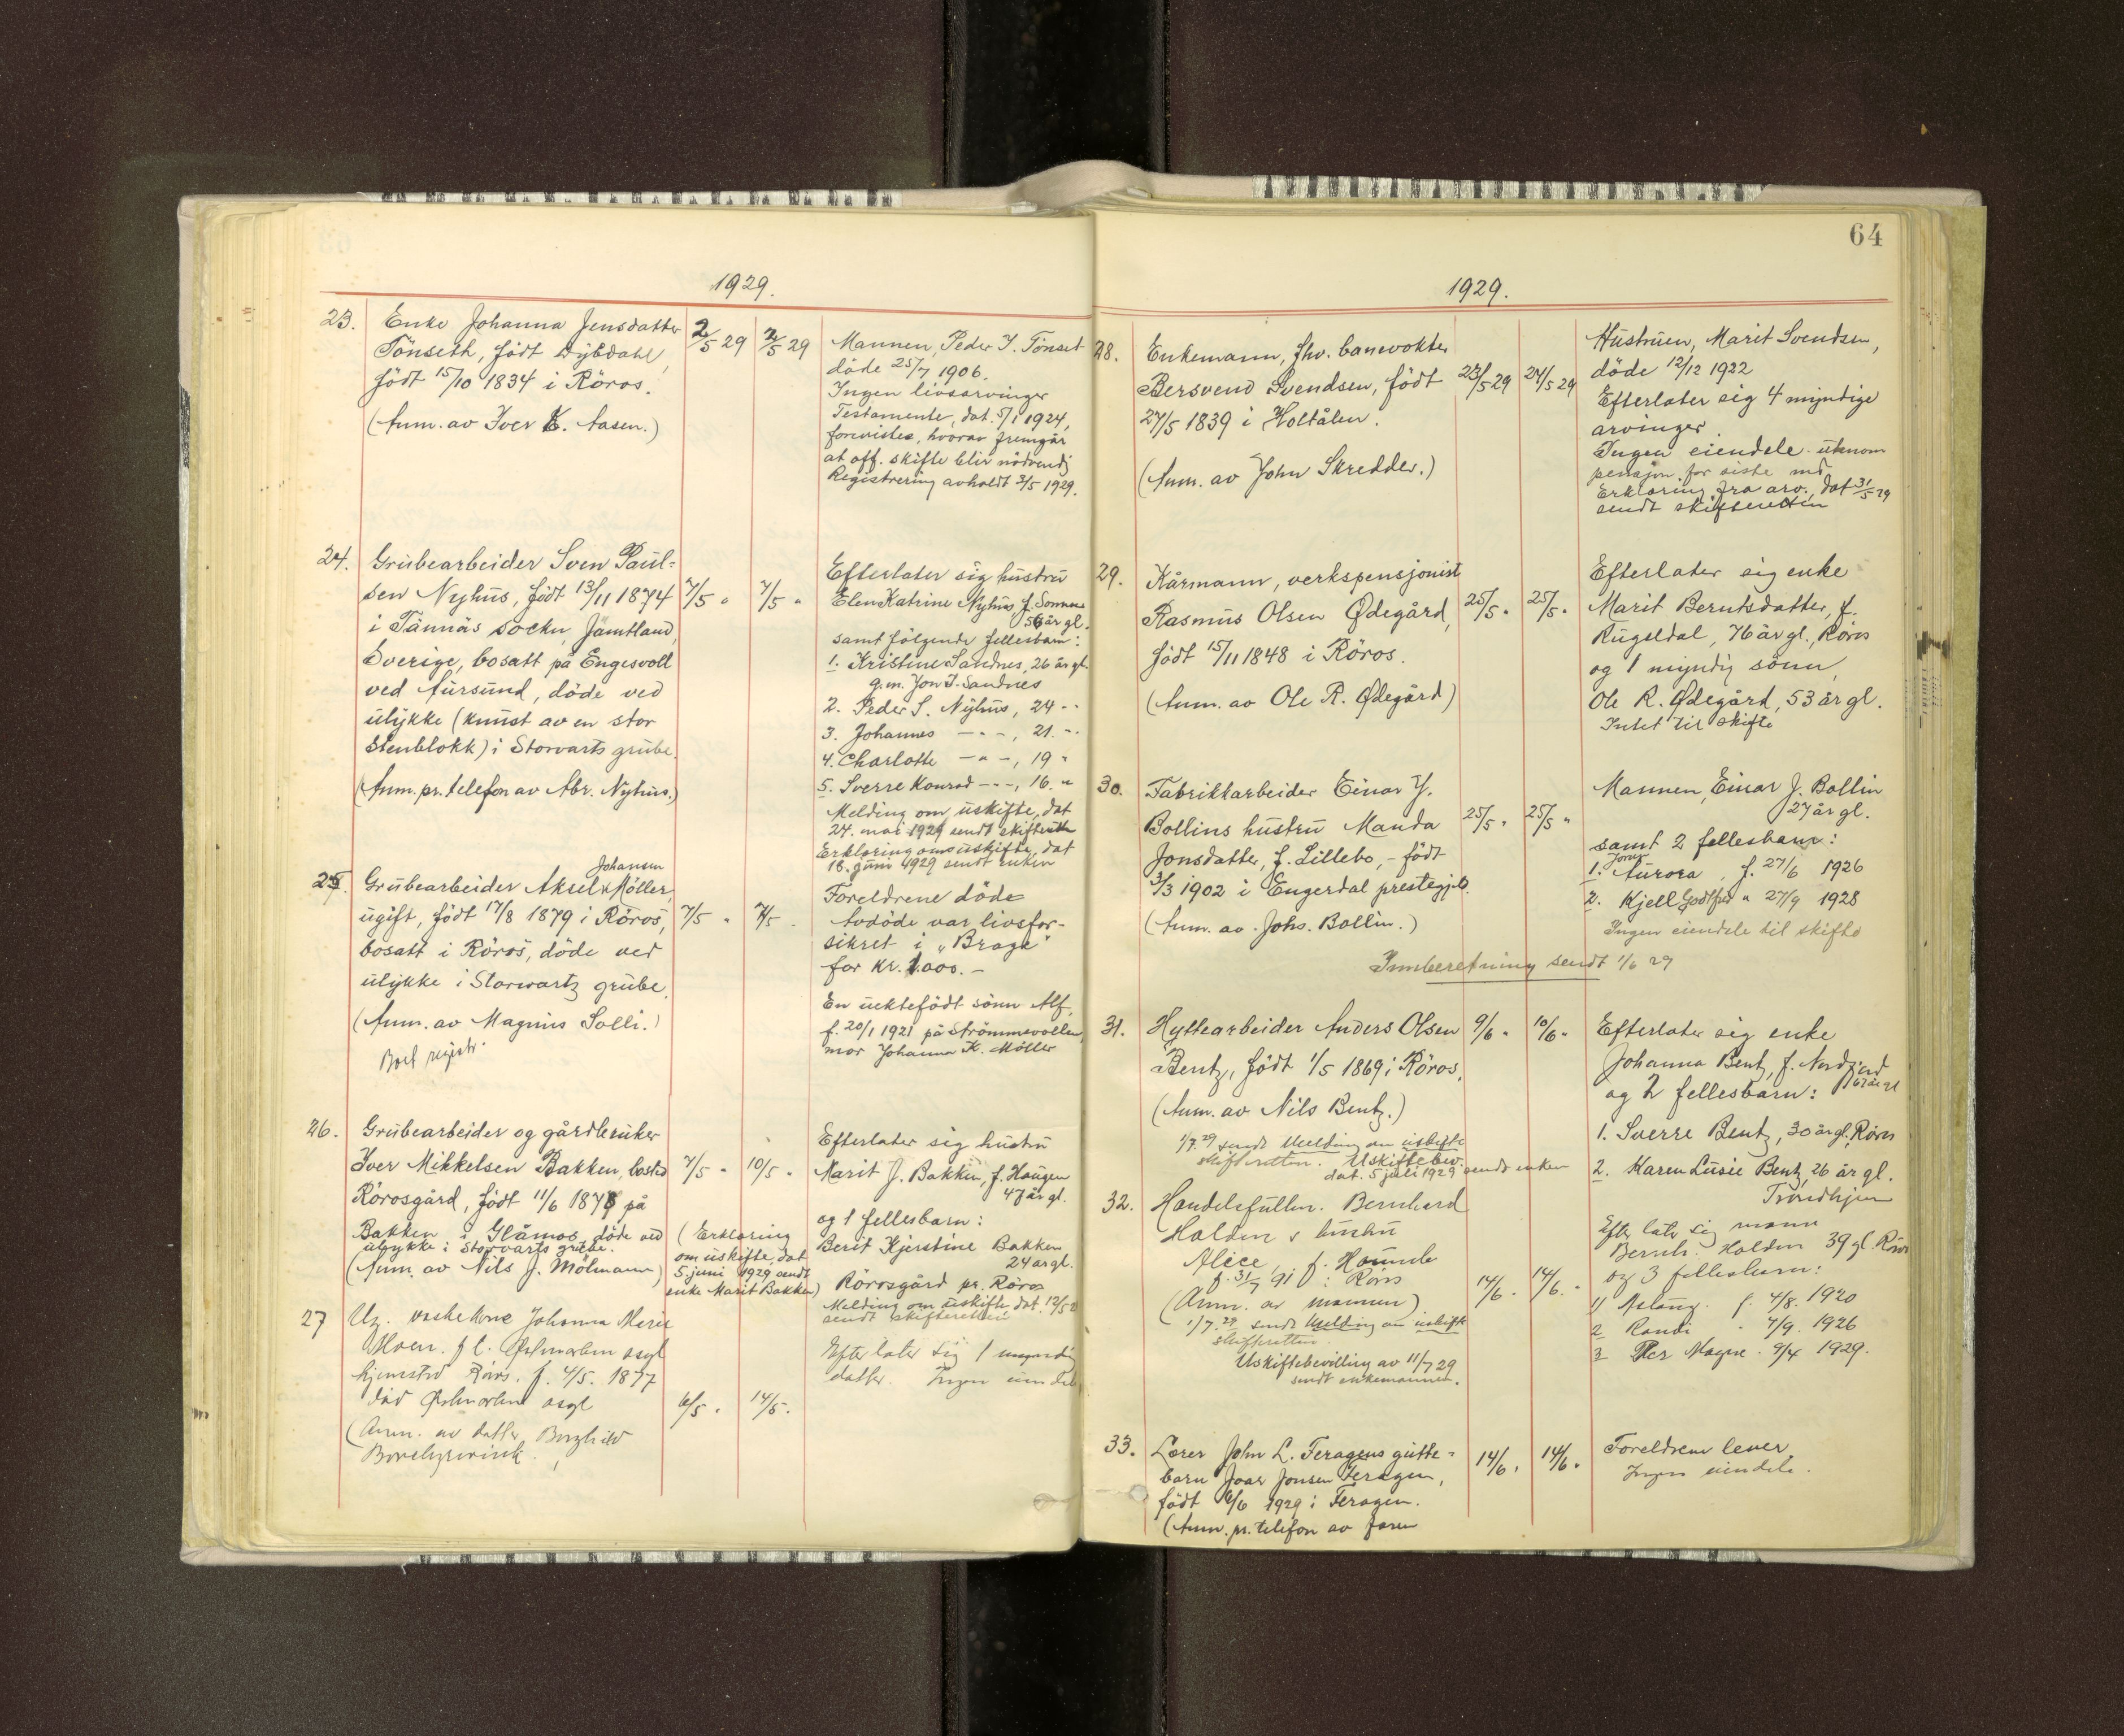 64
1929.
23. Enke Johanna Jensdatter
Tönseth, født Dybdahl,
født 15/10 1834 i Röros.
(Anm. av Iver E. Aasen.)
2/5 29
2/5 29
Mannen, Peder J. Tönset
döde 25/7 1906.
Ingen livsarvinger
Testamente, dat. 5/1 1924,
forevistes, hvorav fremgår
at off. skifte blir nödvendig
Registrering avholdt 3/5 1929.
24. Grubearbeider Sven Paul-
sen Nyhus, født 13/11 1874
i Tännäs sockn, Jämtland,
Sverige, bosatt på Engesvoll
ved Aursund, döde ved
ulykke (knust av en stor
stenblokk) i Storvarts grube.
(Anm. pr. telefon av Abr. Nyhus.)
7/5 "
7/5 "
Efterlater sig hustru
Elen Katrine Nyhus, f.
56 år gl.
samt fölgende fellesbarn:
1. Kristine Sandnes, 26 år gl.
g.m. Jon J. Sandnes
2. Peder S. Nyhus, 24 - "
3. Johannes - " -, 21. - "
4. Charlotte - " -, 19 "
5. Sverre Konrad - " -, 16. "
Melding om uskifte, dat
24. mai 1929 sendt skifteretten
Erklæring om uskifte, dat
18. juni 1929 sendt enken
25. Grubearbeider Aksel Johansen Möller,
ugift, født 17/8 1879 i Röros,
bosatt i Röros, döde ved
ulykke i Storwartz grube.
(Anm. av Magnus Solli.)
Boet registr.
7/5 "
7/5 "
Foreldrene döde
Avdöde var livsfor-
sikret i "Brage"
for kr. 1.000. -
En uektefödt sönn Alf,
f. 20/1 1921 på Strömmevollen,
mor Johanna K. Möller
26. Grubearbeider og gårdbruker
Iver Mikkelsen Bakken, bosted
Rörosgård, født 11/6 1878 på
Bakken i Glåmos, döde ved
ulykke i Storvarts grube.
(Anm. av Nils J. Mölmann)
7/5 "
10/5 "
(Erklæring
om uskifte, dat
5 juni 1929 sendt
enke Marit Bakken)
Efterlater sig hustru
Marit J. Bakken, f. Haugen
47 år gl.
og 1 fellesbarn:
Berit Kjerstine Bakken
24 år gl.
Rörosgård pr. Röros
Melding om uskifte, dat. 12/5
sendt skifteretten
27 Ug. vaskekone Johanna Marie
Moen. asyl
hjemsted Röros. f. 4/5. 1877
död asyl
(Anm. av datter Borghild
6/5 "
14/5 "
Efterlater sig 1 umyndig
datter. Ingen eiendele
1929.
28. Enkemann, fhv. banevokter
Bersvend Svendsen, født
27/5 1839 i Holtålen.
(Anm. av John Skredder.)
23/5 29
24/5 29
Hustruen, Marit Svendsen,
döde 12/12 1922
Efterlater sig 4 myndige
arvinger.
Ingen eiendele utenom
pensjon for siste md.
Erklæring fra arv., dat 31/5 29
sendt skifteretten
29. Kårmann, verkspensjonist
Rasmus Olsen Ødegård,
født 15/11 1848 i Röros.
(Anm. av Ole R. Ødegård)
25/5 "
25/5 "
Efterlater sig enke
Marit Berntsdatter, f.
Rugeldal, 76 år gl., Röros
og 1 myndig sönn,
Ole R. Ødegård, 53 år gl.
Intet til skifte
30. Fabrikkarbeider Einar J.
Bollins hustru Manda
Jonsdatter, f. Lillebo, - født
3/3 1902 i Engerdal prestegj.
(Anm. av Johs. Bollin.)
25/5 "
25/5 "
Mannen, Einar J. Bollin
27 år gl.
samt 2 fellesbarn:
1. Aurora, f. 27/6 1926
2. Kjell Godtfred " 27/9 1928
Ingen eiendele til skifte
Innberetning sendt 1/6 29
31. Hyttearbeider Anders Olsen
Bentz, født 1/5 1869 i Röros.
(Anm. av Nils Bentz.)
1/7 29 sendt Melding om uskifte
skifteretten. Uskiftebev.
dat. 5 juli 1929 sendt enken
9/6 "
10/6 "
Efterlater sig enke
Johanna Bentz, f.
og 2 fellesbarn:
1. Sverre Bentz, 30 år gl., Röros
2. Karen Lusie Bentz, 26 år gl.
Trondhjem
32. Handelsfullm. Bernhard
Holden s hustru
Alice, f.
f. 31/7 91 i Röros
(Anm. av mannen)
1/7 29 sendt Melding om uskifte
skifteretten
Uskiftebevilling av 11/7 29
sendt enkemannen.
14/6 "
14/6 "
Efterlater sig mann
Bernh. Holden 39 gl. Röros
og 3 fellesbarn:
1) f. 4/8. 1920
2 Randi " 7/9. 1926
3 Per Magne 9/4 1929.
33. Lærer John L. Feragens gutte-
barn Joar Jonsen Feragen,
født 6/6 1929 i Feragen.
(Anm. pr. telefon av faren
14/6 "
14/6 "
Foreldrene lever.
Ingen eiendele.